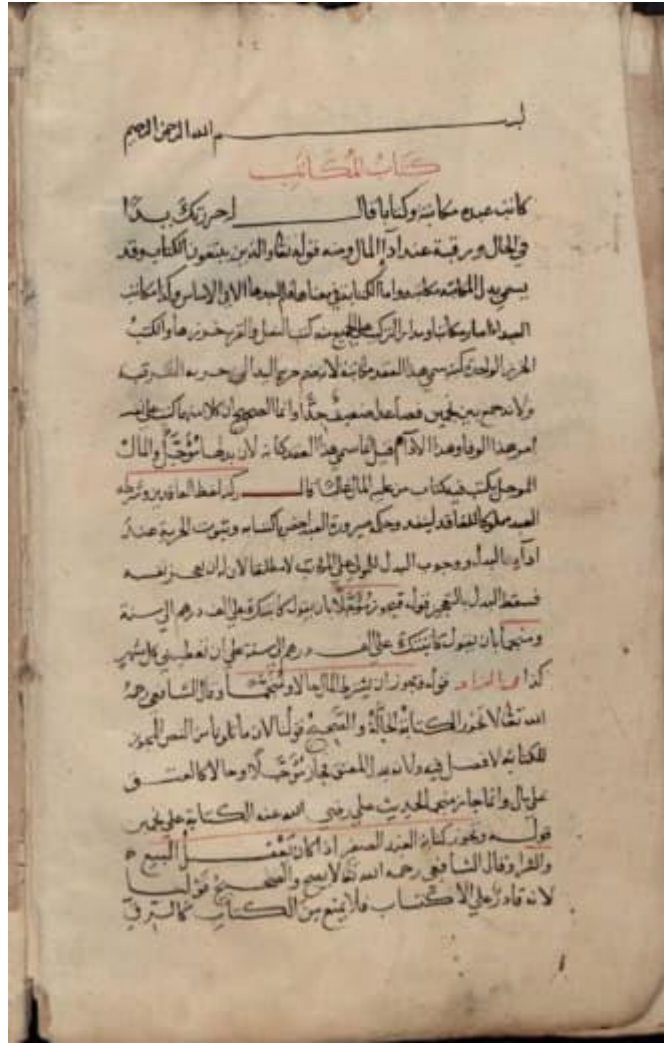 بسم الله الرحمن الرحيم
كتاب المكاتب
كاتب عبده مكاتبة وكتابا قال احررتك يدا
في الحال ورقبة عند اداء المال ومنه قوله تعالى والذين يبتغون الكتاب وقد
يسمى بدل المكاتبة مكاتبة واما الكتابة في معناها فلم اجدها الا في الاساس وكذا مكاتب
العبد اذا صار مكاتبا ومدار التركيب على الجمع ومنه كتب النعل والقربة خرزها والكتب
الخرز الواحدة كتبة سمي هذا العقد مكاتبة لانه ضم حرية اليد الى حرية الرقبة
ولانه جمع بين نجمين فصاعدا ضعيف جدا وانما الصحيح ان كلا منهما كتب على نفسه
امر هذا الوفا وهذا الاداء قيل انما سمي هذا العقد كتابة لان بدلها مؤجل والمال
المؤجل يكتب فيه كتاب من عليه المال قال ركنه لفظ العاقدين وشرطه
العبد مملوكا للعاقد لينفذ وحكمه صيرورة العبد احق باكسابه وثبوت الحرية عند
اداء البدل ووجوب البدل للمولى على المكاتب لا مطلقا لان له ان يعجز نفسه
فسقط البدل بالتعجيز قوله فيجوز مؤجلا بان يقول كاتبتك على الف درهم الى سنة
ومنجما بان يقول كاتبتك على الف درهم الى سنة على ان تعطيني كل شهر
كذا قوله ويجوز ان يشترط المال حالا ومنجما وقال الشافعي رحمه
الله تعالى لا تجوز الكتابة الحالة والصحيح قولنا لان ما تلونا من النص المجوز
للكتابة لا فصل فيه ولانه بدل المعتق فجاز مؤجلا وحالا كالعتق
على مال وانما جاز منجما لحديث علي رضي الله عنه الكتابة على نجمين
قوله وتجوز كتابة العبد الصغير اذا كان يعقل البيع
والشرا وقال الشافعي رحمه الله تعالى لا يصح والصحيح قولنا
لانه قادر على الاكتساب فلا يمنع من الكتاب كما